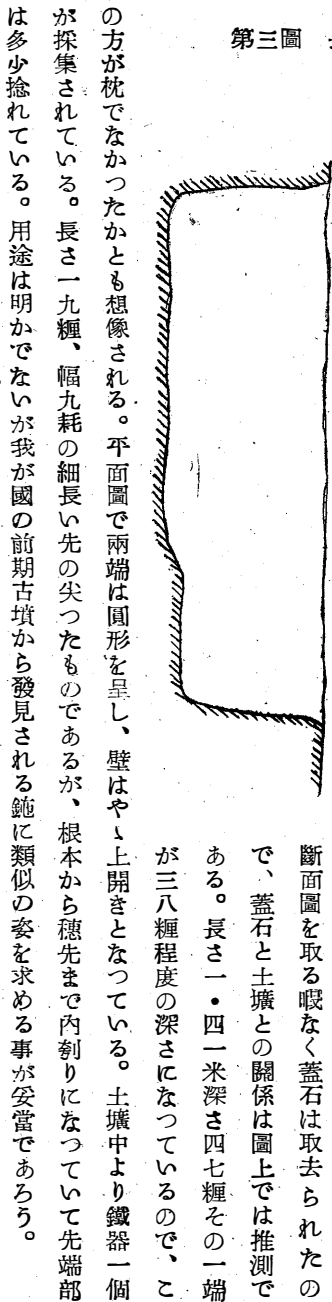 第三圖
斷面圖を取る暇なく蓋石は取去られたの
で、蓋石と土壙との關係は圖上では推測で
ある。長さ一・四一米深さ四七糎その一端
が三八糎程度の深さになつているので、こ
の方が枕でなかつたかとも想像される。平面圖で兩端は圓形を呈し、壁はやゝ上開きとなつている。土壙中より鐵器一個
が採集されている。長さ一九糎、幅九粍の細長い先の尖つたものであるが、根本から穗先まで内刳りになつていて先端部
は多少捻れている。用途は明かでないが我が國の前期古墳から發見される鉇に類似の姿を求める事が妥當であろう。